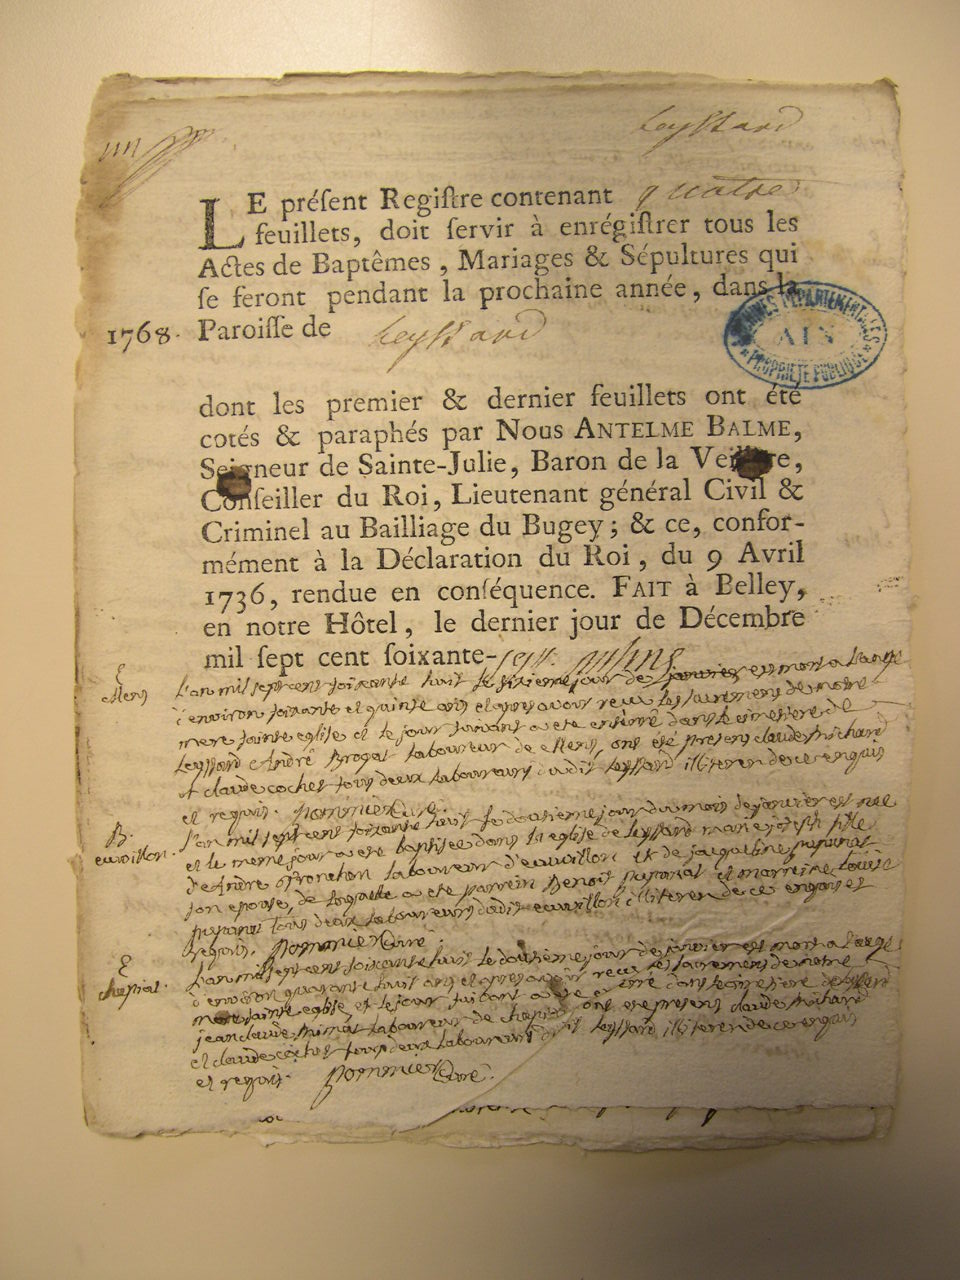 Leyssard
LE préſent Regiſtre contenant quatre
feuillets, doit ſervir à enrégiſtrer tous les
Actes de Baptêmes, Mariages & Sépultures qui
ſe feront pendant la prochaine année, dans la
1768. Paroiſſe de Leyssard
ARCHIVES DÉPARTEMENTALES
AIN
PROPRIÉTÉ PUBLIQUE
dont les premier & dernier feuillets ont été
cotés & paraphés par NOUS ANTELME BALME,
Seigneur de Sainte-Julie, Baron de la
Conſeiller du Roi, Lieutenant général Civil &
Criminel au Bailliage du Bugey; & ce, confor-
mément à la Déclaration du Roi, du 9 Avril
1736, rendue en conſéquence. FAIT à Belley,
en notre Hôtel, le dernier jour de Décembre
mil ſept cent ſoixante-sept
L'an mil sept cens soixante huit le sixieme jour de janvier est mort a l'age
d'environ soixante et quinse ans et apres avoir reçu les sacremens de nostre
mere sainte eglise et le jour suivant a ete enterré dans le cimetiere de
Leyssard André laboureur de ont été presens claude michard
et claude cochet tous deux laboureurs dudit Leyssard illiteres de ce enquis
et requis. curé.
B. L'an mil sept cens soixante huit le jour du mois de janvier est née
et le meme jour a ete baptisée dans la eglise de Leyssard fille
d'André laboureur et de jacqueline
son epouse, a ete parrein Benoit et marreine Louise
tous deux laboureurs dudit illiteres de ce enquis et
requis. curé
L'an mil sept cens soixante huit le jour de janvier est mort a l'age
d'environ quarante huit ans et apres avoir reçu les sacremens de nostre
mere sainte eglise et le jour suivant a ete enterré dans le cimetiere de Leyssard
jean claude laboureur de ont ete presens claude michard
et claude cochet tous deux laboureurs dudit Leyssard illiteres de ce enquis
et requis. curé.